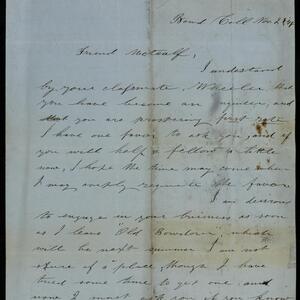 Bowd. Coll. Nov. 2
Friend Metcalf,
I understand
by your classmate, Wheeler, that
you have become an engineer, and
that you are prospering first rate.
I have one favor to ask you, and if
you will help a fellow a little
now, I hope the time may come when
I may amply requite the favor.
I am desirous
to engage in your business as soon
as I leave "Old Bowdoin", which
will be next summer. I am not
sure of a place, though I have
tried some time to get one, and
now I must ask you if you know